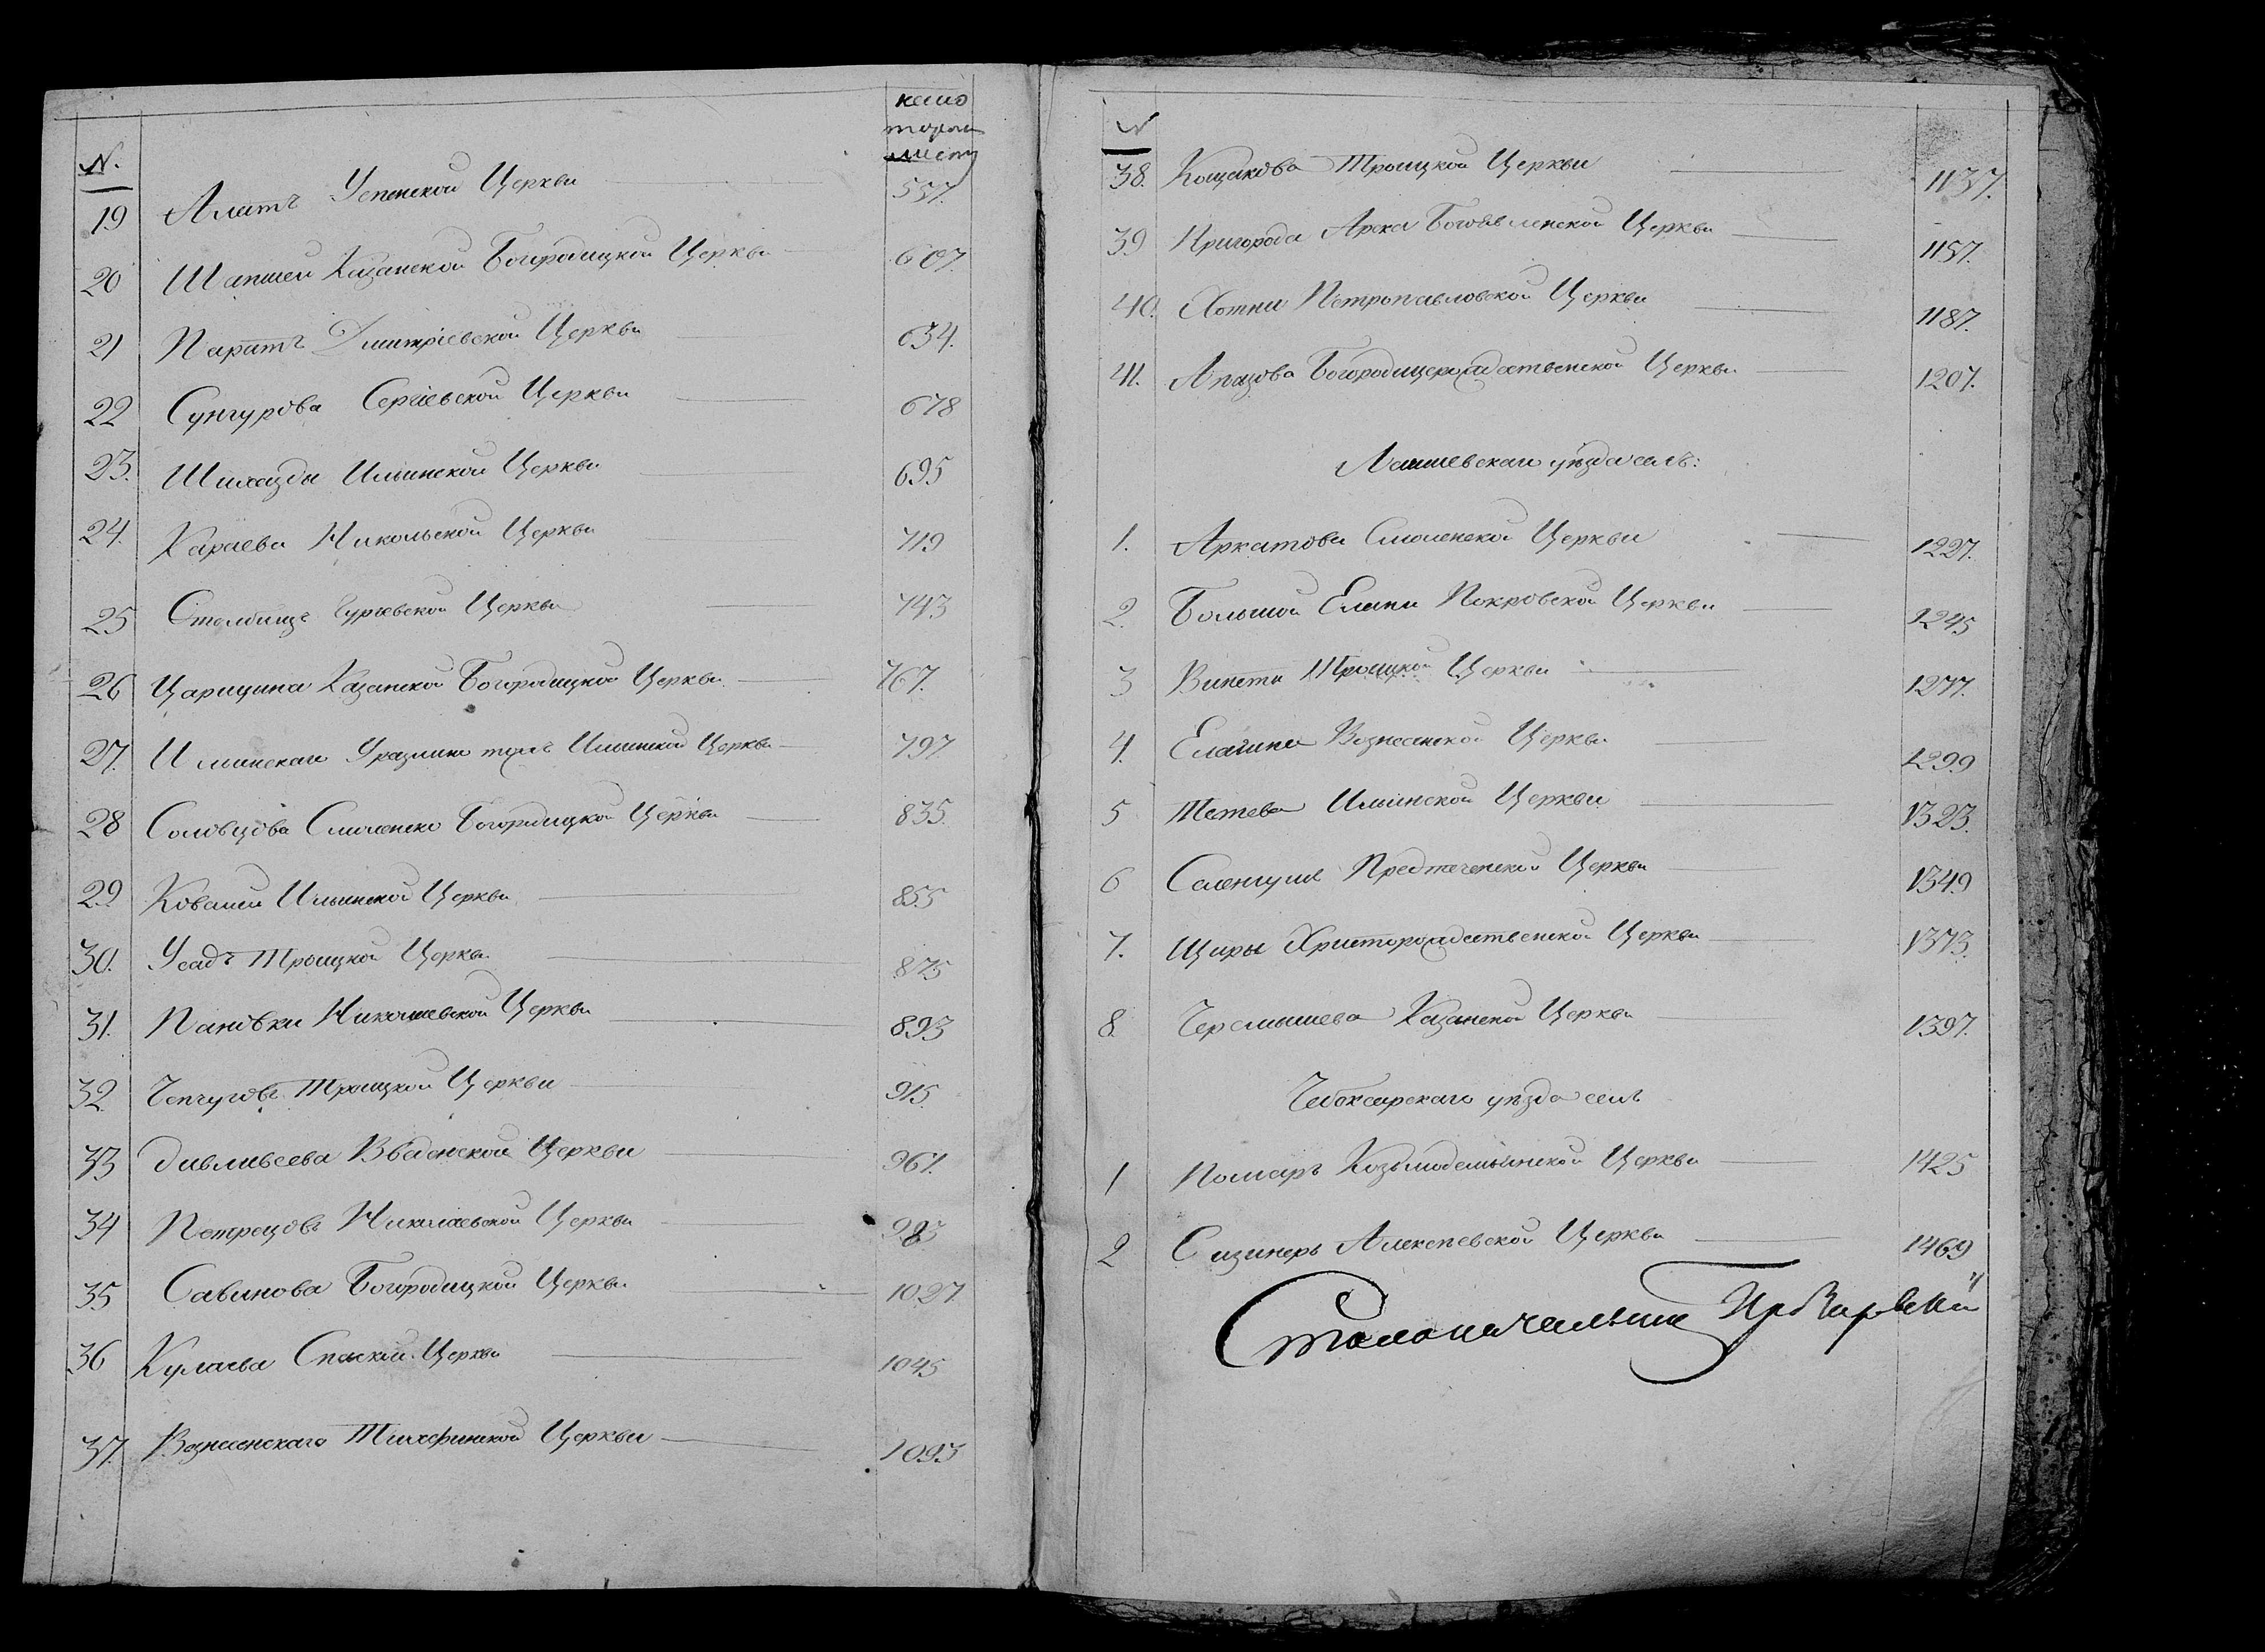 N.
на ко
тором
листу
19 Алатъ Успенской Церкви 557.
20 Шапшей Казанской Богородицкой Церкви 607.
21 Паратъ Дмитріевской Церкви 634.
22 Сунгурова Сергіевской Церкви 678
23. Шихазды Ильинской Церкви 695
24. Караева Никольской Церкви 719
25 Столбищъ Гурьевской Церкви 743
26 Царицына Казанской Богородицкой Церкви 767.
27. Илинскаго Уразлино тожъ Ильинской Церкви 797
28 Соловцова Смоленско Богородицкой Церкви 835.
29 Ковалей Ильинской Церкви 855
30. Усадъ Троицкой Церкви 875
31. Пановки Николаевской Церкви 893
32 Чепчуговъ Троицкой Церкви 915
33 Дивликеева Введенской Церкви 961.
34 Петрецовъ Николаевской Церкви 983
35 Савинова Богородицкой Церкви 1027.
36 Кулаева Спаской Церкви 1045
37. Вознесенскаго Тихфинской Церкви 1093
N
38. Кощакова Троицкой Церкви 1137.
39 Пригорода Арска Богоявленской Церкви 1157.
40. Хотни Петропавловской Церкви 1187.
41. Апазова Богородицерождественской Церкви 1207.
Лаишевскаго уѣзда селъ:
1. Аркатова Смоленской Церкви 1227.
2. Большой Елани Покровской Церкви 1245
3 Винети Троицкой Церкви 1277.
4. Елагина Вознесенской Церкви 1299
5 Тетева Ильинской Церкви 1323.
6 Селенгуше Предтеченской Церкви 1349
7. Щиры Христорождественской Церкви 1373.
8 Черемышева Казанской Церкви 1397.
Чебоксарскаго уѣзда селъ
1 Помаръ Козьмодемьянской Церкви 1425
2 Сизинерь Алексѣевской Церкви 1469
Столоначальник